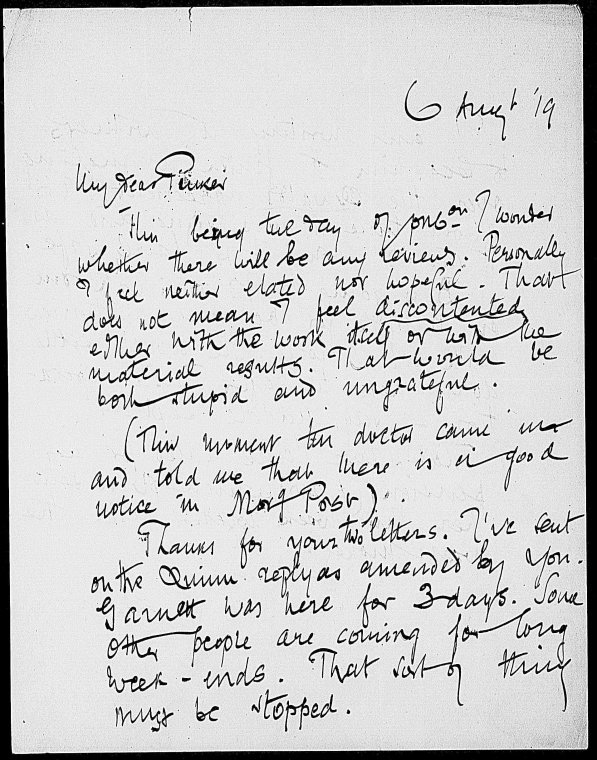 6 Augt '19
My dear Pinker
This being the day of pubon I wonder
whether there will be any reviews. Personally
I feel neither elated nor hopeful. That
does not mean I feel discontented
either with the work itself or with the
material results. That would be
both stupid and ungrateful.
(This moment the doctor came in
and told me that there is a good
notice in Morg Post).
Thanks for your two letters. I've sent
on the Quinn reply as amended by you.
Garnett was here for 3 days. Some
other people are coming for long
week-ends. That sort of thing
must be stopped.